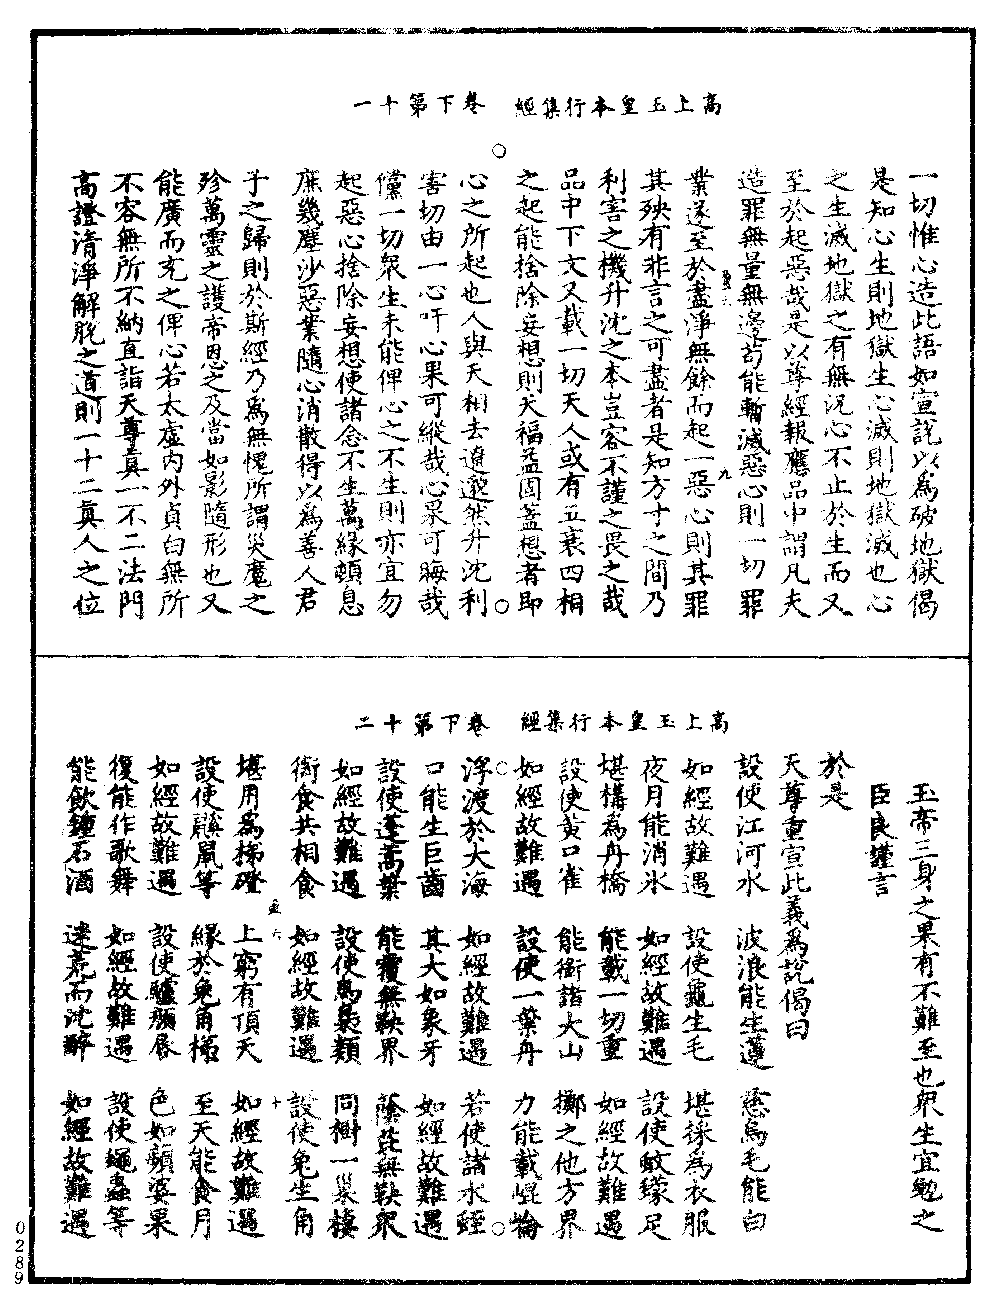 高上玉皇本行集經　卷下第十一
一切惟心造此語如宣說以為破地獄偈
是知心生則地獄生心滅則地獄滅也心
之生滅地獄之有無況心不止於生而又
至於起惡哉是以尊經報應品中謂凡夫
造罪無量無邊苟能暫滅惡心則一切罪
業遂至於盡淨無餘而起一惡心則其罪
其殃有非言之可盡者是知方寸之間乃
利害之機升沈之本豈容不謹之畏之哉
品中下文又載一切天人或有五衰四相
之起能捨除妄想則天福益固蓋想者即
心之所起也人與天相去遼邈然升沈利
害切由一心吁心果可縱哉心果可晦哉
儻一切眾生未能俾心之不生則亦宜勿
起惡心捨除妄想使諸念不生萬緣頓息
庶幾塵沙惡業隨心消散得以為善人君
子之歸則於斯經乃為無愧所謂災魔之
殄萬靈之護帝恩之及當如影隨形也又
能廣而充之俾心若太虛內外貞白無所
不容無所不納直詣天尊真一不二法門
高證清淨解脫之道則一十二真人之位
高上玉皇本行集經　卷下第十二
玉帝三身之果有不難至也眾生宜勉之
臣良謹言
於是
天尊重宣此義為說偈曰
設使江河水　波浪能生蓮　慈烏毛能白
如經故難遇　設使龜生毛　堪採為衣服
夜月能消氷　如經故難遇　設使蚊蠓足
堪構為舟橋　能載一切重　如經故難遇
設使黃口雀　能銜諸大山　擲之他方界
如經故難遇　設使一葉舟　力能載崐崙
浮渡於大海　如經故難遇　若使諸水蛭
口能生巨齒　其大如象牙　如經故難遇
設使蓬蒿葉　能覆無鞅界　蔭芘無鞅眾
如經故難遇　設使烏梟類　同樹一巢棲
銜食共相食　如經故難遇　設使兔生角
堪用為梯磴　上窮有頂天　如經故難遇
設使鼷鼠等　緣於兔角梯　至天能食月
如經故難遇　設使驢頻唇　色如頻婆果
復能作歌舞　如經故難遇　設使蠅蟲等
能飲鍾石酒　迷荒而沈醉　如經故難遇
0289